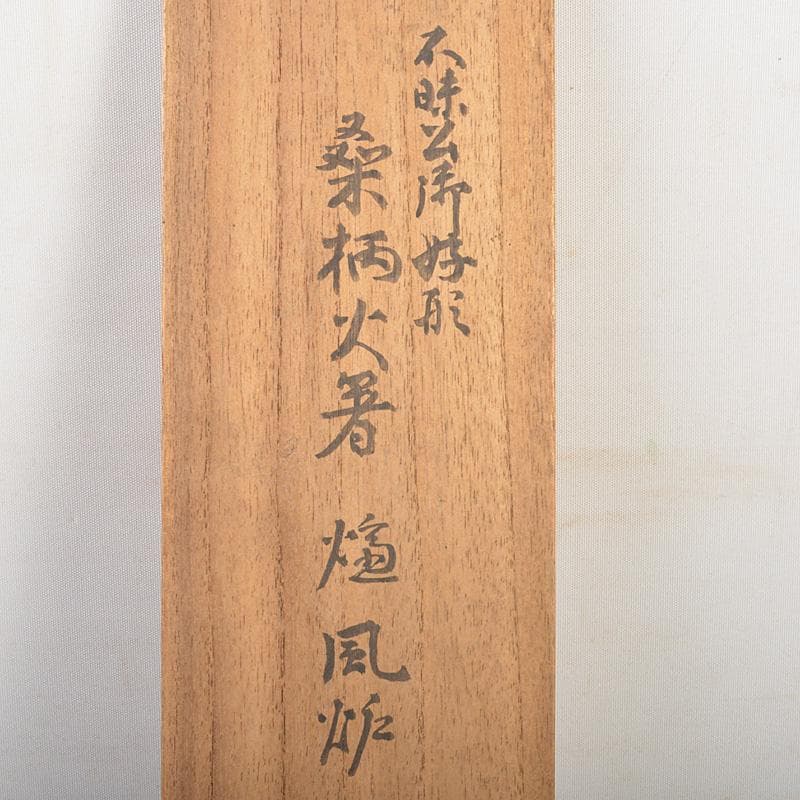 不昧公御好形
桑柄火箸 爐風炉